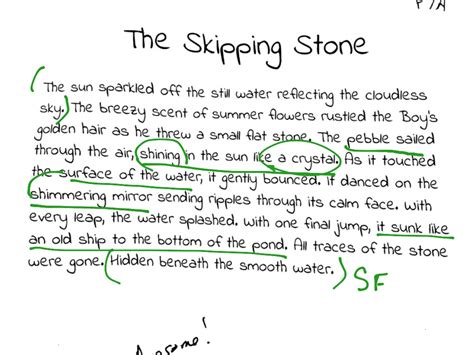 P/A
The Skipping Stone
The sun sparkled off the still water reflecting the cloudless
sky. The breezy scent of summer flowers rustled the Boy's
golden hair as he threw a small flat stone. The pebble sailed
through the air, shining in the sun like a crystal. As it touched
the surface of the water, it gently bounced. It danced on the
shimmering mirror sending ripples through its calm face. With
every leap, the water splashed. With one final jump, it sunk like
an old ship to the bottom of the pond. All traces of the stone
were gone. Hidden beneath the smooth water.
SF
Awesome!